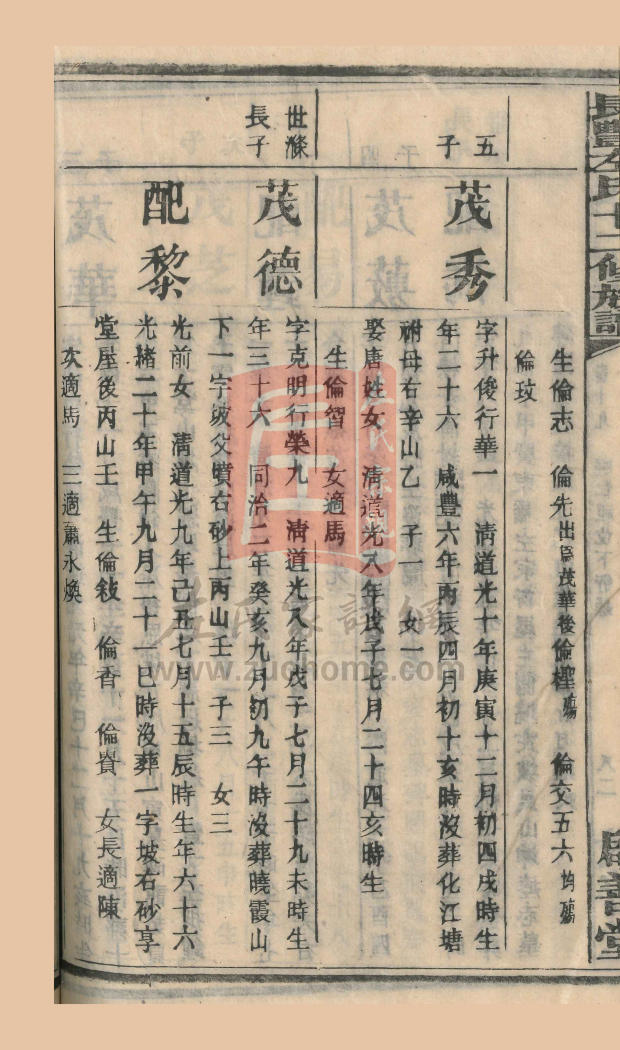 長豐左氏十二修族譜
生倫志　倫先出爲茂華後倫檉殤　倫交五六均殤
倫玟
五子
茂秀
字升俊行華一　清道光十年庚寅十二月初四戌時生
年二十六　咸豐六年丙辰四月初十亥時沒葬化江塘
祔母右辛山乙　子一　女一
娶唐姓女　清道光八年戊子七月二十四亥時生
生倫智　女適馬
世滌長子
茂德
字克明行榮九　清道光八年戊子七月二十九未時生
年三十六　同治二年癸亥九月初九午時沒葬曉霞山
下一字坡父墳右砂上丙山壬　子三　女三
配黎
光前女　清道光九年己丑七月十五辰時生年六十六
光緒二十年甲午九月二十一巳時沒葬一字坡右砂享
堂屋後丙山壬　生倫敍　倫香　倫賨　女長適陳
次適馬　三適蕭永煥
左氏家譜網
www.zuohome.com